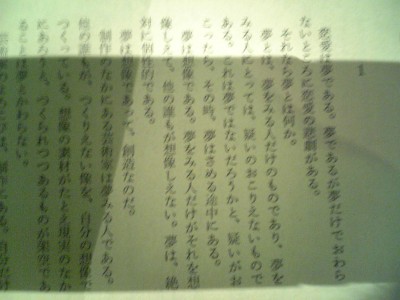 1
恋愛は夢である。夢であるが夢だけでおわら
ないところに恋愛の悲劇がある。
それなら夢とは何か。
夢とは、夢をみる人だけのものであり、夢を
みる人にとっては、疑いのおこりえないもので
ある。これは夢ではないだろうかと、疑いがお
こったら、その時、夢はさめる途中にある。
夢は想像である。夢をみる人だけがそれを想
像しえて、他の誰もが想像しえない。夢は、絶
対に個性的である。
夢は想像であって、創造なのだ。
制作のなかにある芸術家は夢みる人である。
他の誰もが、つくりえない像を、自分の想像で
つくっている。想像の素材がたとえ現実のなか
にあろうと、つくられつつあるものが架空であ
ることは夢とかわらない。